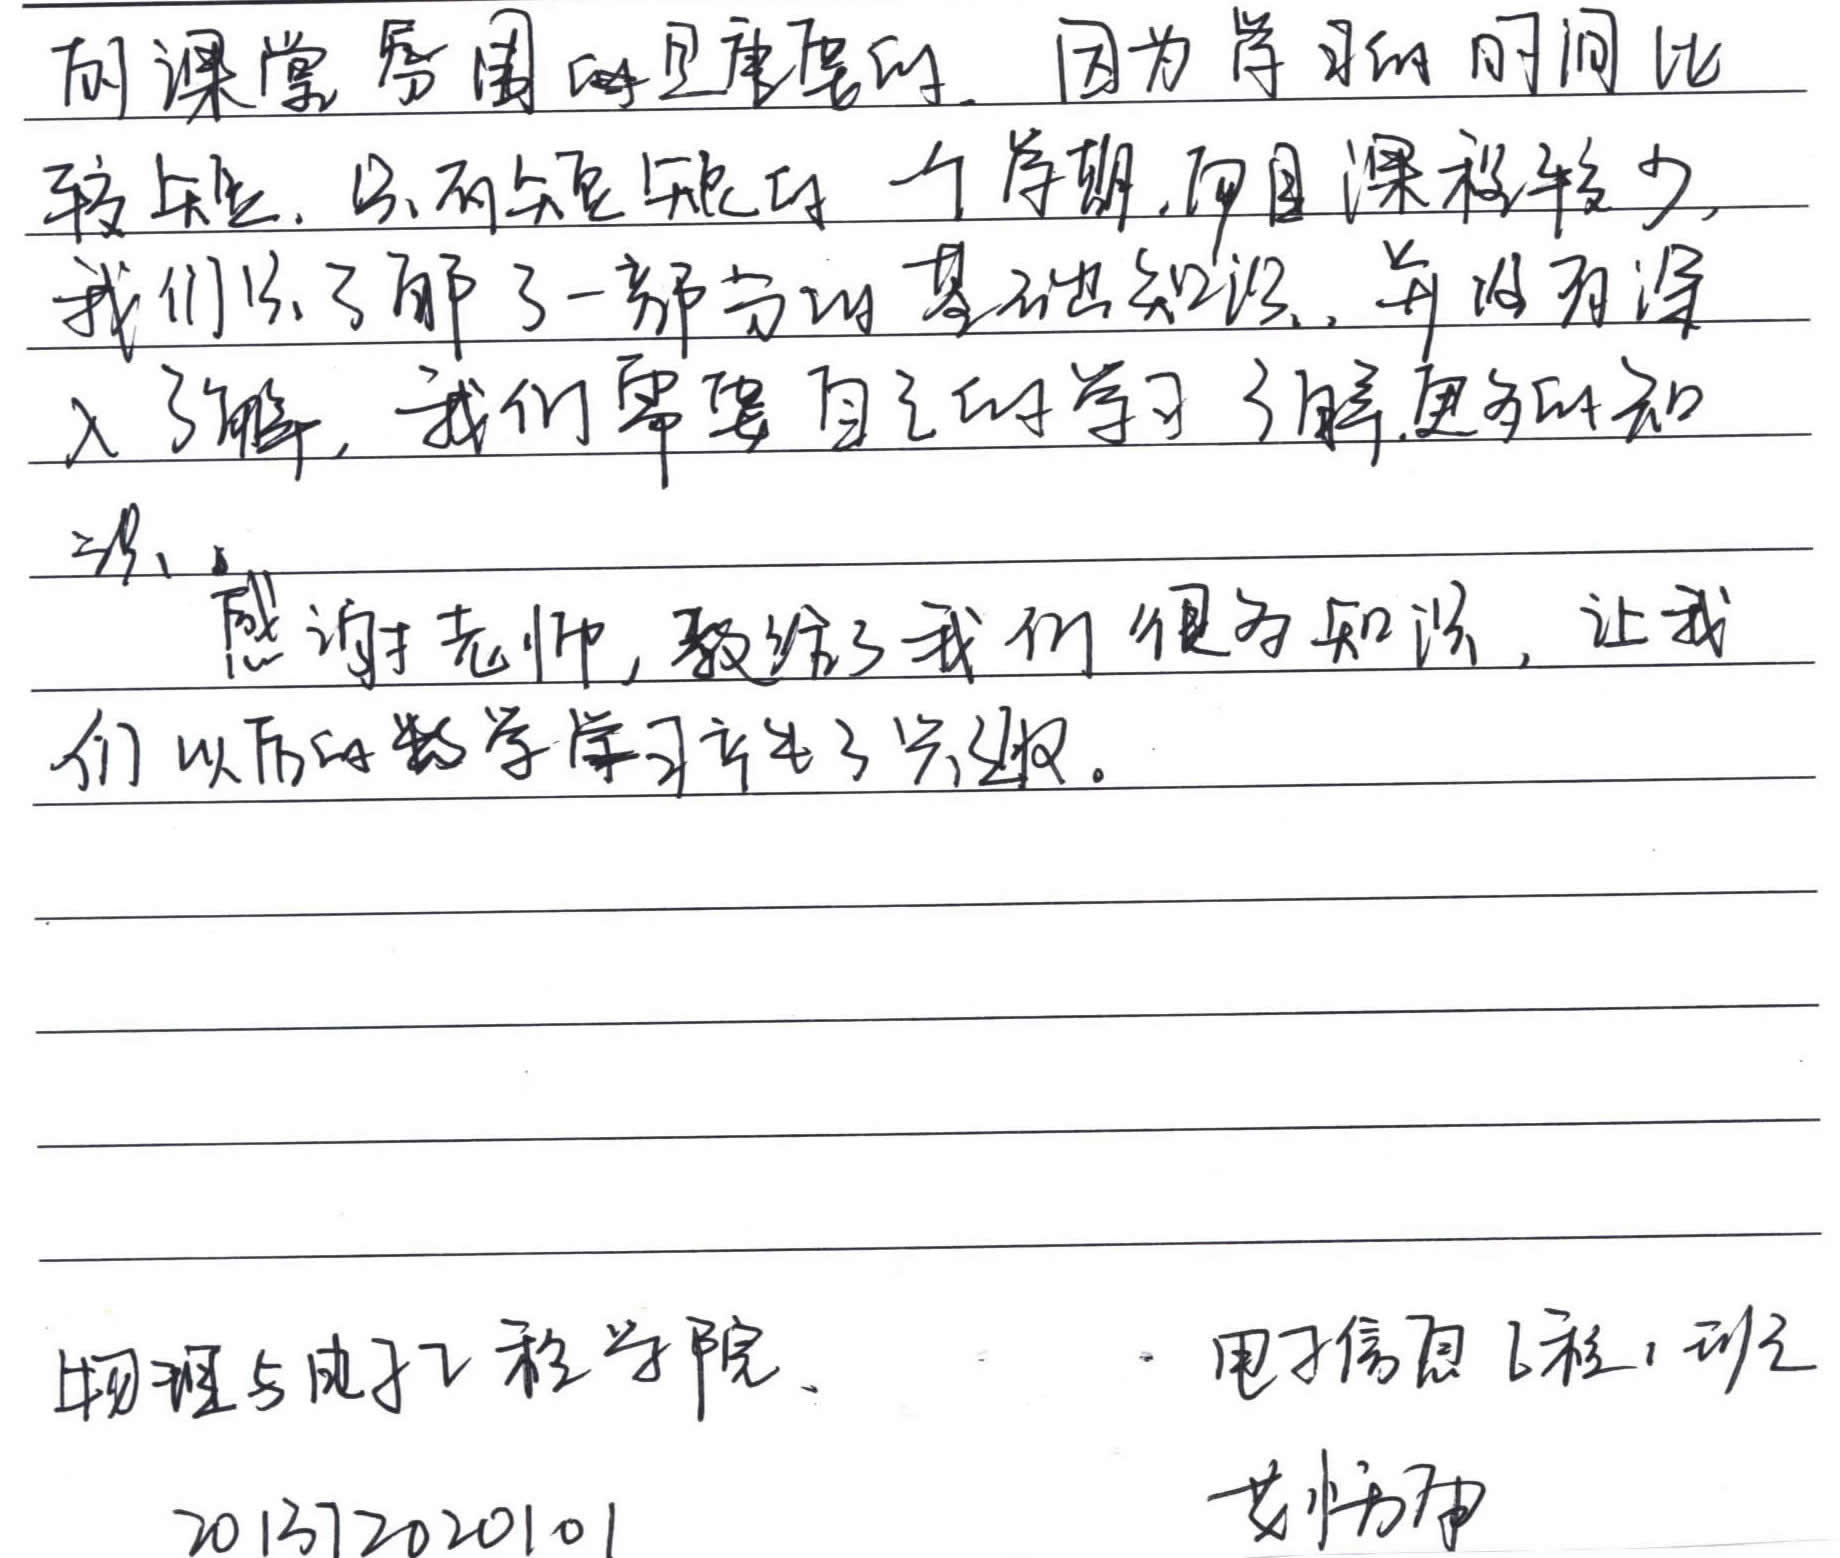 的课堂氛围的是重要的. 因为学习的时间比
较短. 只有短短的一个学期,而且课程较少,
我们只了解了一部分的基础知识. 并没有深
入了解, 我们需要自己的学习了解更多的知
识.
感谢老师, 教给了我们很多知识, 让我
们以后的数学学习产生了兴趣。
物理与电子工程学院.
电子信息工程1班
201317020101